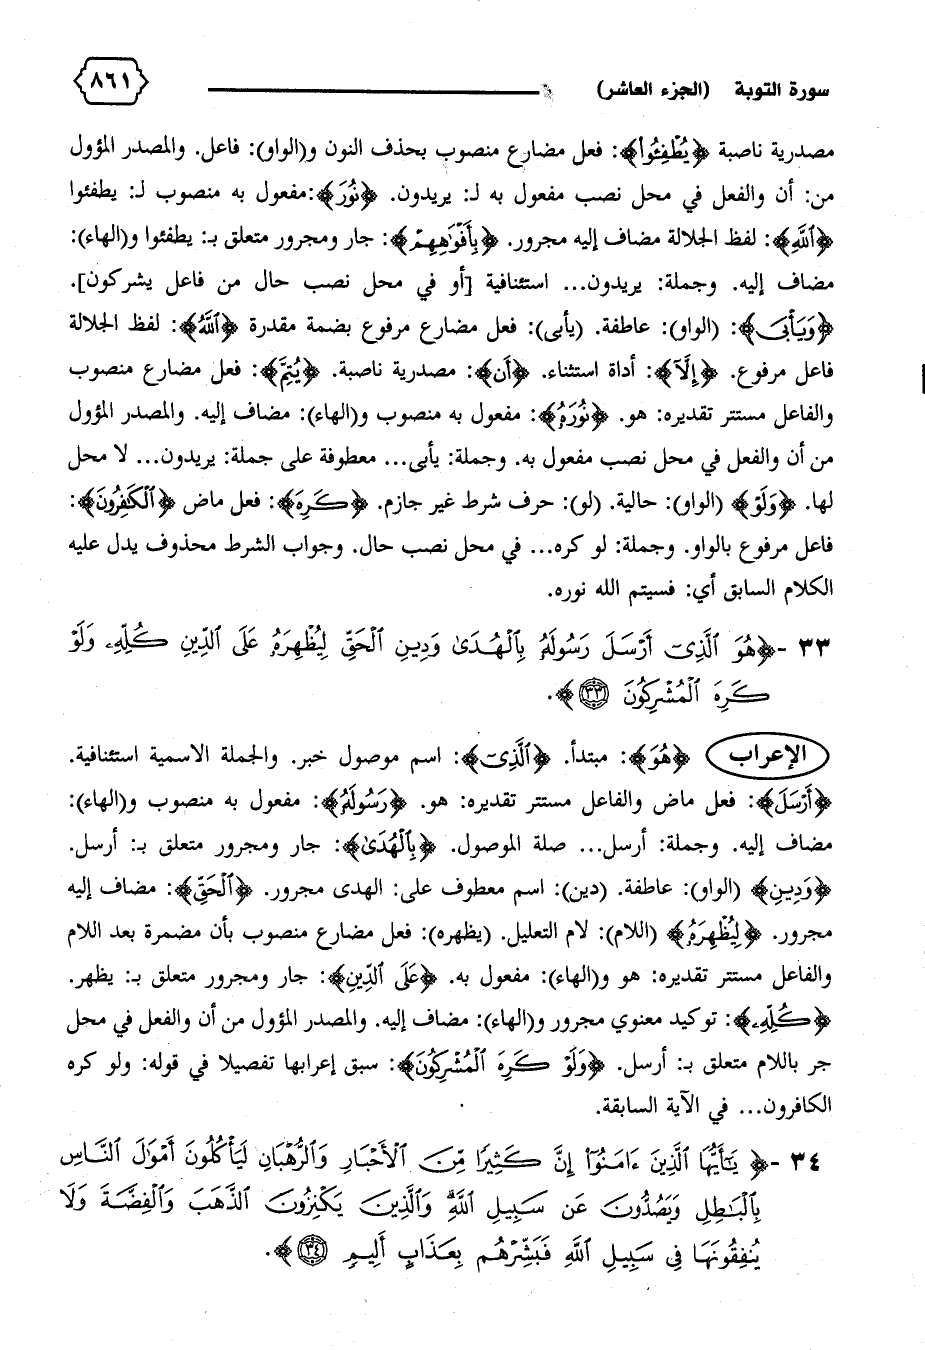 سورة التوبة (الجزء العاشر)
٨٦١
مصدرية ناصبة ﴿يُطْفِئُوا۟﴾: فعل مضارع منصوب بحذف النون و(الواو): فاعل. والمصدر المؤول
من: أن والفعل في محل نصب مفعول به لـ: يريدون. ﴿نُورَ﴾:مفعول به منصوب لـ: يطفئوا
﴿ٱللَّهِ﴾: لفظ الجلالة مضاف إليه مجرور. ﴿بِأَفْوَٰهِهِمْ﴾: جار ومجرور متعلق بـ: يطفئوا و(الهاء):
مضاف إليه. وجملة: يريدون... استئنافية [أو في محل نصب حال من فاعل يشركون].
﴿وَيَأْبَى﴾: (الواو): عاطفة. (يأبى): فعل مضارع مرفوع بضمة مقدرة ﴿ٱللَّهُ﴾: لفظ الجلالة
فاعل مرفوع. ﴿إِلَّآ﴾: أداة استثناء. ﴿أَن﴾: مصدرية ناصبة. ﴿يُتِمَّ﴾: فعل مضارع منصوب
والفاعل مستتر تقديره: هو. ﴿نُورَهُۥ﴾: مفعول به منصوب و(الهاء): مضاف إليه. والمصدر المؤول
من أن والفعل في محل نصب مفعول به. وجملة: يأبى... معطوفة على جملة: يريدون... لا محل
لها. ﴿وَلَوْ﴾ (الواو): حالية. (لو): حرف شرط غير جازم. ﴿كَرِهَ﴾: فعل ماض ﴿ٱلْكَٰفِرُونَ﴾:
فاعل مرفوع بالواو. وجملة: لو كره... في محل نصب حال. وجواب الشرط محذوف يدل عليه
الكلام السابق أي: فسيتم الله نوره.
٣٣ -﴿هُوَ ٱلَّذِىٓ أَرْسَلَ رَسُولَهُۥ بِٱلْهُدَىٰ وَدِينِ ٱلْحَقِّ لِيُظْهِرَهُۥ عَلَى ٱلدِّينِ كُلِّهِۦ وَلَوْ
كَرِهَ ٱلْمُشْرِكُونَ ٣٣﴾.
الإعراب ﴿هُوَ﴾: مبتدأ. ﴿ٱلَّذِىٓ﴾: اسم موصول خبر. والجملة الاسمية استئنافية.
﴿أَرْسَلَ﴾: فعل ماض والفاعل مستتر تقديره: هو. ﴿رَسُولَهُۥ﴾: مفعول به منصوب و(الهاء):
مضاف إليه. وجملة: أرسل... صلة الموصول. ﴿بِٱلْهُدَىٰ﴾: جار ومجرور متعلق بـ: أرسل.
﴿وَدِينِ﴾ (الواو): عاطفة. (دين): اسم معطوف على: الهدى مجرور. ﴿ٱلْحَقِّ﴾: مضاف إليه
مجرور. ﴿لِيُظْهِرَهُۥ﴾ (اللام): لام التعليل. (يظهره): فعل مضارع منصوب بأن مضمرة بعد اللام
والفاعل مستتر تقديره: هو و(الهاء): مفعول به. ﴿عَلَى ٱلدِّينِ﴾: جار ومجرور متعلق بـ: يظهر.
﴿كُلِّهِۦ﴾: توكيد معنوي مجرور و(الهاء): مضاف إليه. والمصدر المؤول من أن والفعل في محل
جر باللام متعلق بـ: أرسل. ﴿وَلَوْ كَرِهَ ٱلْمُشْرِكُونَ﴾: سبق إعرابها تفصيلا في قوله: ولو كره
الكافرون... في الآية السابقة.
٣٤ -﴿يَٰٓأَيُّهَا ٱلَّذِينَ ءَامَنُوٓا۟ إِنَّ كَثِيرًا مِّنَ ٱلْأَحْبَارِ وَٱلرُّهْبَانِ لَيَأْكُلُونَ أَمْوَٰلَ ٱلنَّاسِ
بِٱلْبَٰطِلِ وَيَصُدُّونَ عَن سَبِيلِ ٱللَّهِ ۗ وَٱلَّذِينَ يَكْنِزُونَ ٱلذَّهَبَ وَٱلْفِضَّةَ وَلَا
يُنفِقُونَهَا فِى سَبِيلِ ٱللَّهِ فَبَشِّرْهُم بِعَذَابٍ أَلِيمٍ ٣٤﴾.